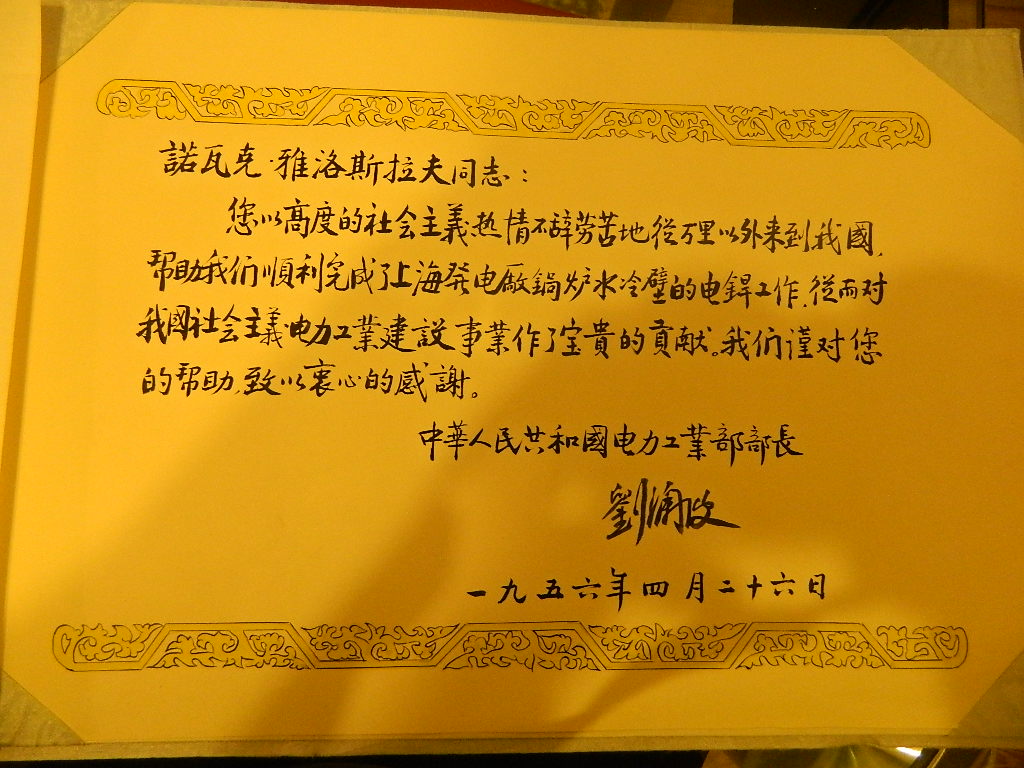 諾瓦克·雅洛斯拉夫同志：
您以高度的社会主義热情不辞劳苦地從万里以外来到我國,
帮助我们順利完成了上海発电廠鍋炉水冷壁的电銲工作,從而对
我國社会主義电力工業建設事業作了宝貴的貢献。我们谨对您
的帮助,致以衷心的感謝。
中華人民共和國电力工業部部長
劉瀾波
一九五六年四月二十六日